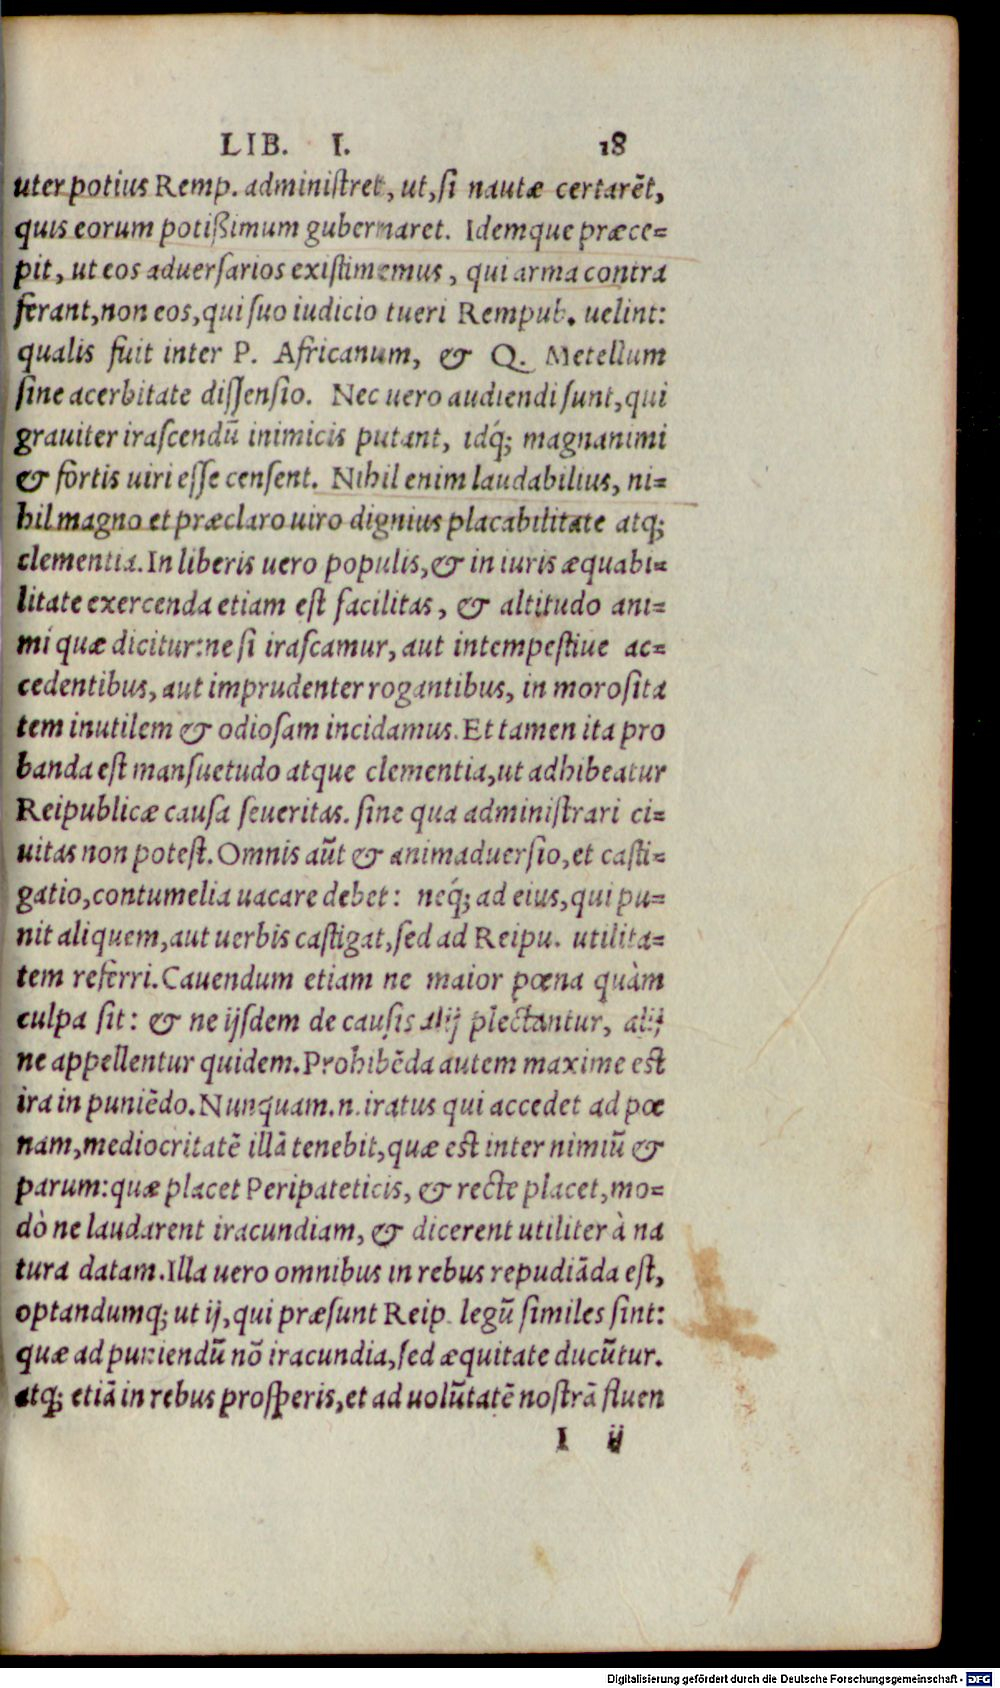 LIB. I. 18
uter potius Remp. administret, ut, si nautæ certarēt,
quis eorum potißimum gubernaret. Idemque præce=
pit, ut eos aduersarios existimemus, qui arma contra
ferant, non eos, qui suo iudicio tueri Rempub. uelint:
qualis fuit inter P. Africanum, & Q. Metellum
sine acerbitate dissensio. Nec uero audiendi sunt, qui
grauiter irascendū inimicis putant, idq́; magnanimi
& fortis uiri esse censent. Nihil enim laudabilius, ni=
hil magno et præclaro uiro dignius placabilitate atq;
clementia. In liberis uero populis, & in iuris æquabi=
litate exercenda etiam est facilitas, & altitudo ani=
mi quæ dicitur: ne si irascamur, aut intempestiue ac=
cedentibus, aut imprudenter rogantibus, in morosita
tem inutilem & odiosam incidamus. Et tamen ita pro
banda est mansuetudo atque clementia, ut adhibeatur
Reipublicæ causa seueritas. sine qua administrari ci=
uitas non potest. Omnis aūt & animaduersio, et casti=
gatio, contumelia uacare debet: neq́; ad eius, qui pu=
nit aliquem, aut uerbis castigat, sed ad Reipu. utilita=
tem referri. Cauendum etiam ne maior pœna quàm
culpa sit: & ne ijsdem de causis alij plectantur, alij
ne appellentur quidem. Prohibēda autem maxime est
ira in puniēdo. Nunquam .n. iratus qui accedet ad pœ
nam, mediocritatē illā tenebit, quæ est inter nimiū &
parum: quæ placet Peripateticis, & recte placet, mo=
dò ne laudarent iracundiam, & dicerent utiliter à na
tura datam. Illa uero omnibus in rebus repudiāda est,
optandumq; ut ij, qui præsunt Reip. legū similes sint:
quæ ad puniendū nō iracundia, sed æquitate ducūtur.
atq; etiā in rebus prosperis, et ad uolūtatē nostrā fluen
I ij
Digitalisierung gefördert durch die Deutsche Forschungsgemeinschaft - DFG